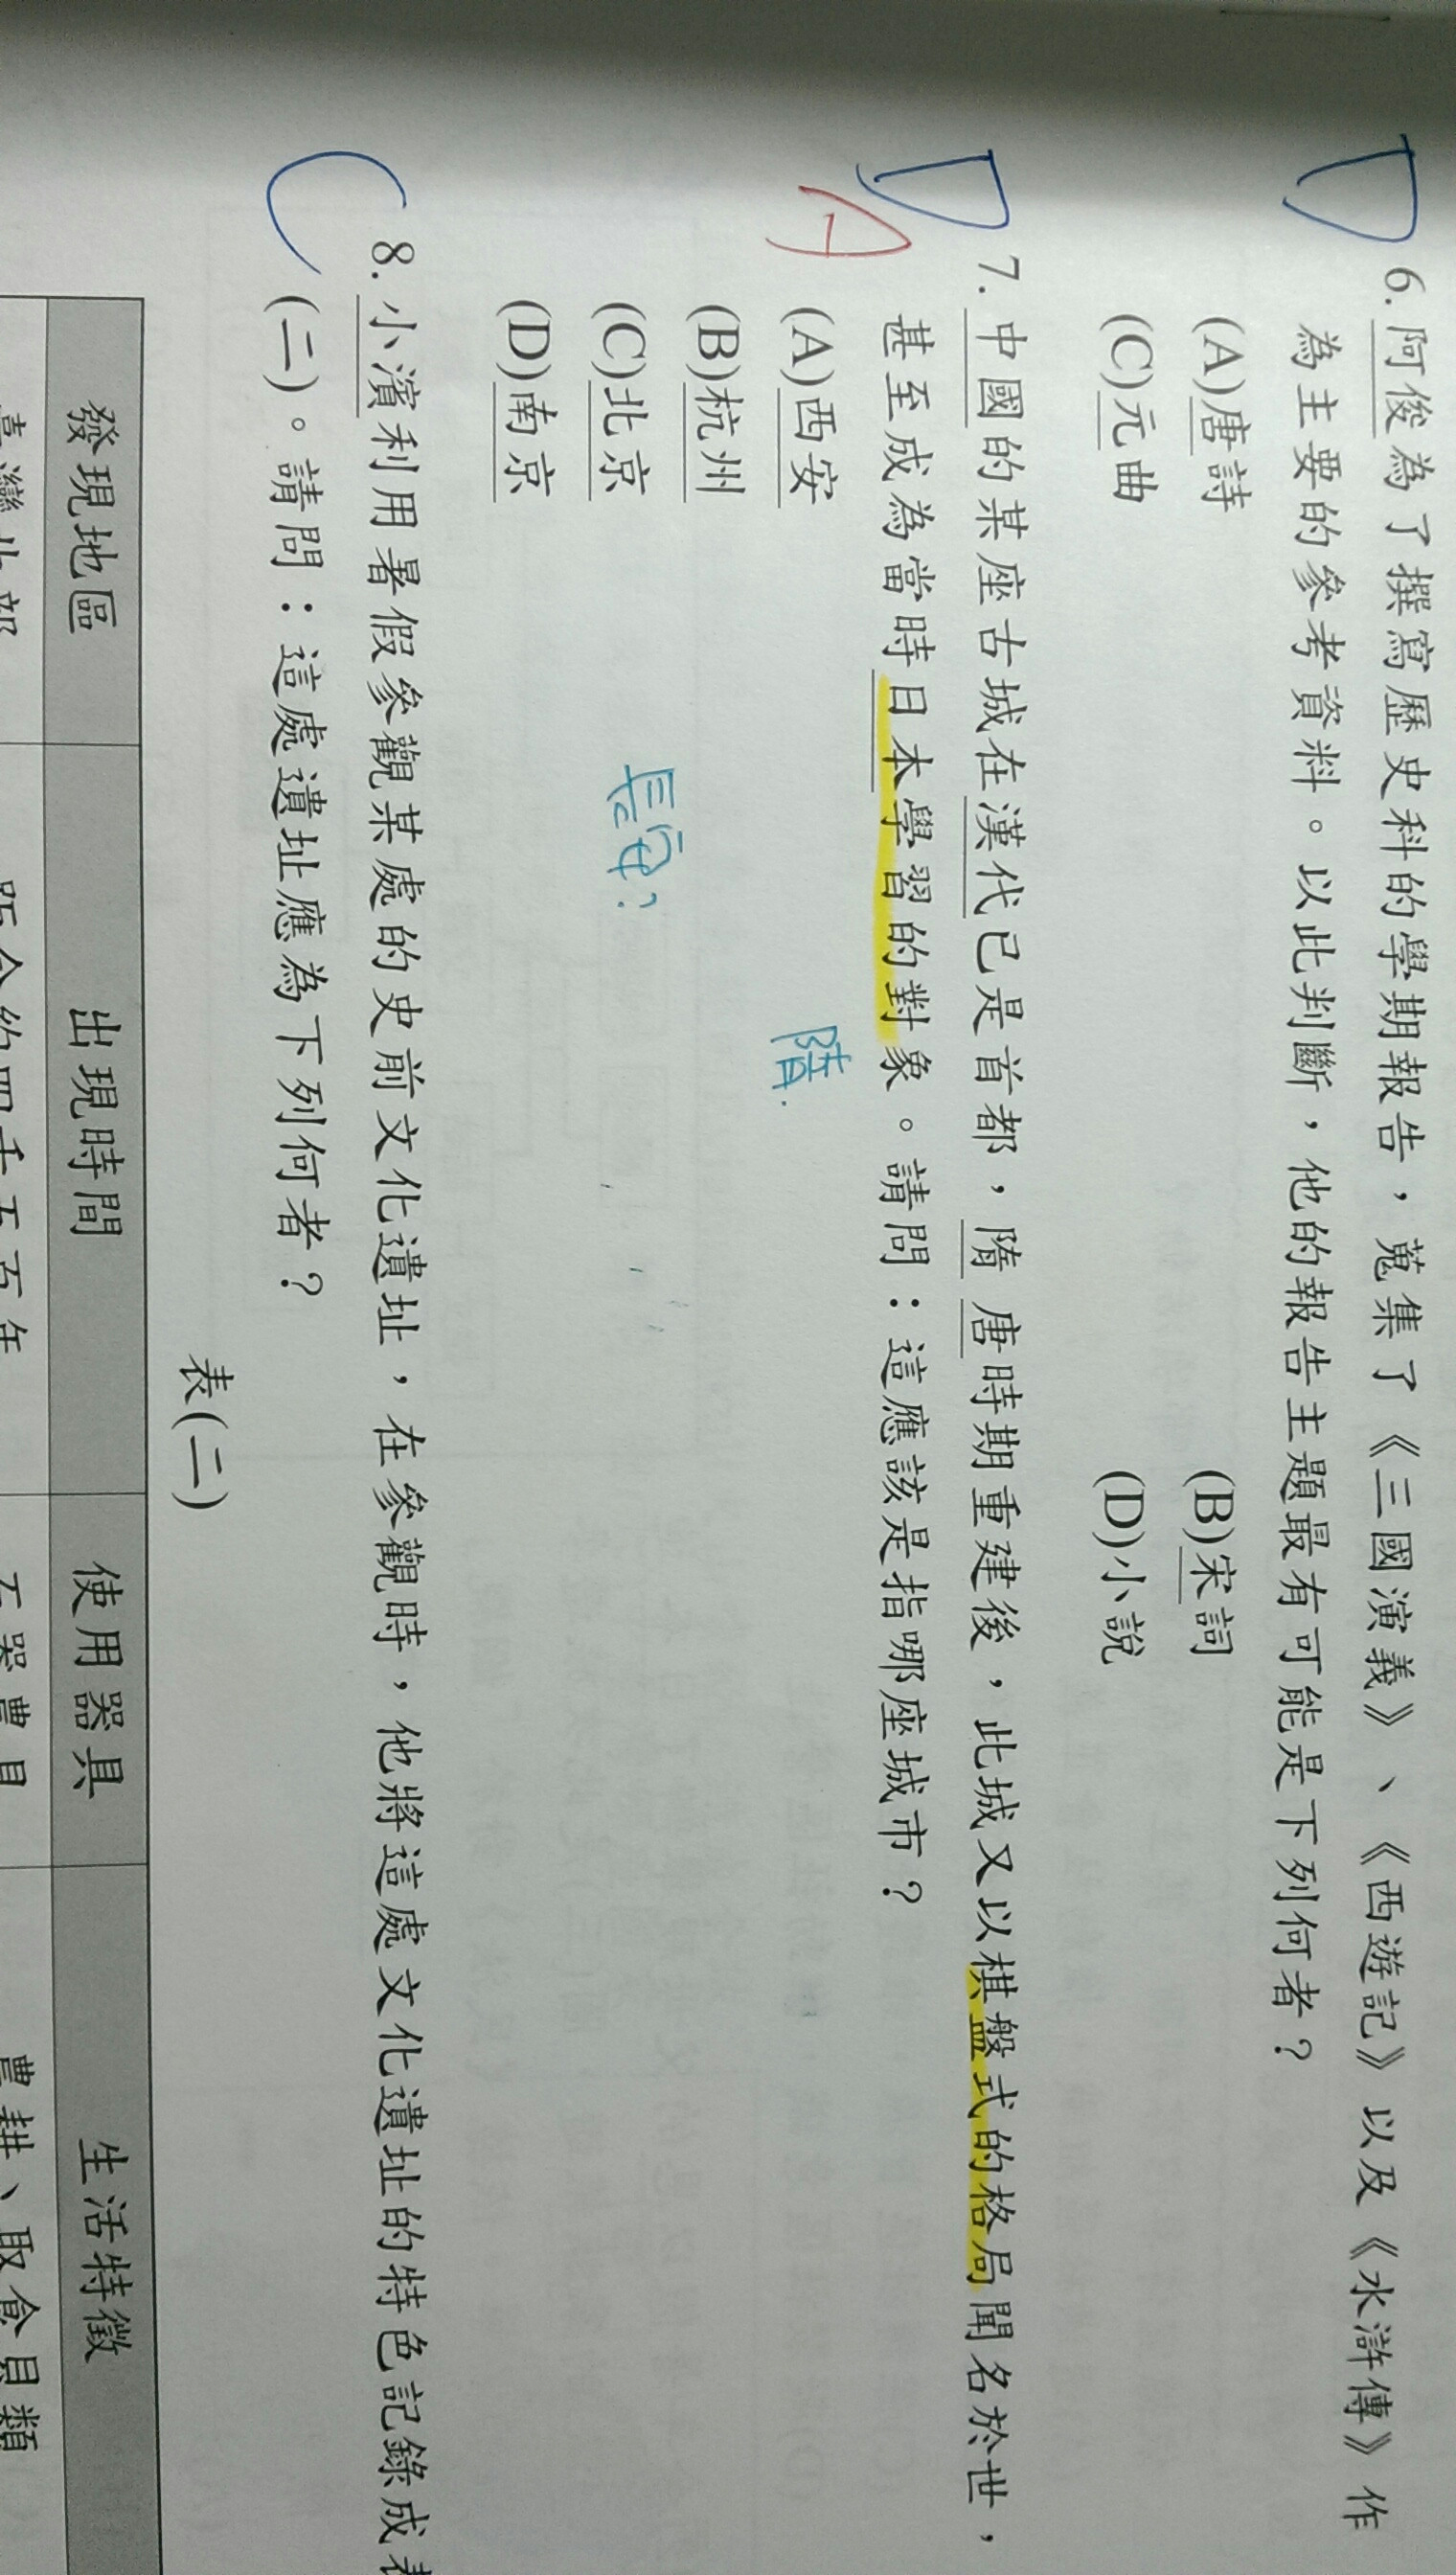 D 6.阿俊為了撰寫歷史科的學期報告，蒐集了《三國演義》、《西遊記》以及《水滸傳》作
為主要的參考資料。以此判斷，他的報告主題最有可能是下列何者？
(A)唐詩 (B)宋詞
(C)元曲 (D)小說
D 7.中國的某座古城在漢代已是首都，隋 唐時期重建後，此城又以棋盤式的格局聞名於世，
A 甚至成為當時日本學習的對象。請問：這應該是指哪座城市？
(A)西安 隋.
(B)杭州
(C)北京 長安?
(D)南京
C 8.小濱利用暑假參觀某處的史前文化遺址，在參觀時，他將這處文化遺址的特色記錄成表
(二)。請問：這處遺址應為下列何者？
表(二)
發現地區 出現時間 使用器具 生活特徵
臺灣北部 距今約四千五百年 石器農具 農耕、取食貝類